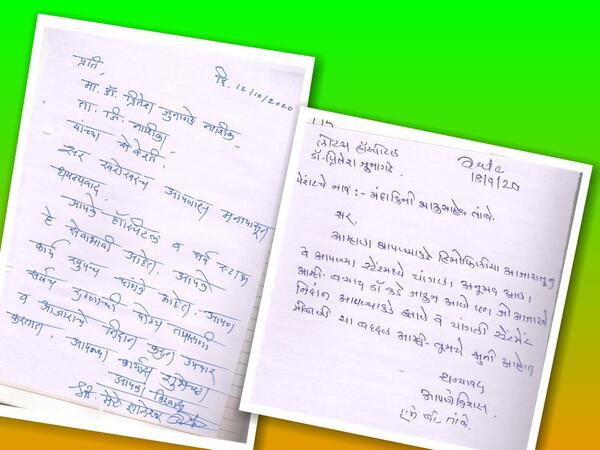 प्रति,
दि. 12/10/2020
मा. डॉ. प्रितेश जुनागडे नाशिक
ता. जि. नाशिक
यांच्या सेवेशी
सर खरोखरच आपणास मनापासून
धन्यवाद.
आपले हॉस्पिटल व सर्व स्टाफ
हे सेवाभावी आहेत. आपले
कार्य खुपच चांगले आहे. आपण
सर्वच रुग्णांची योग्य तपासणी
व आजाराचे निदान करून उपचार
करतात. आपल्या कार्यास शुभेच्छा
आपला विश्वासू
श्री. मेटे ज्ञानेश्वर
लोटस हॉस्पीटल
डॉ. प्रितेश जूनागडे
Date
18/9/20
पेशंटचे नाव :- मंदाकिनी भाऊसाहेब तांबे.
सर.
आम्हाला आपल्याकडे हिमोफिलीया आजाराबद्दल
व आपल्या ट्रेंटमध्ये चांगला अनुभव आला.
आम्ही बऱ्याच डॉ कडे जाऊन आले पण जो आजाराचे
निदान आपल्याकडे झाले व चांगली ट्रेंटमेंट
मिळाली या बद्दल आम्ही तुमचे ऋणी आहोत
धन्यवाद
आपले विश्वासू
तांबे.